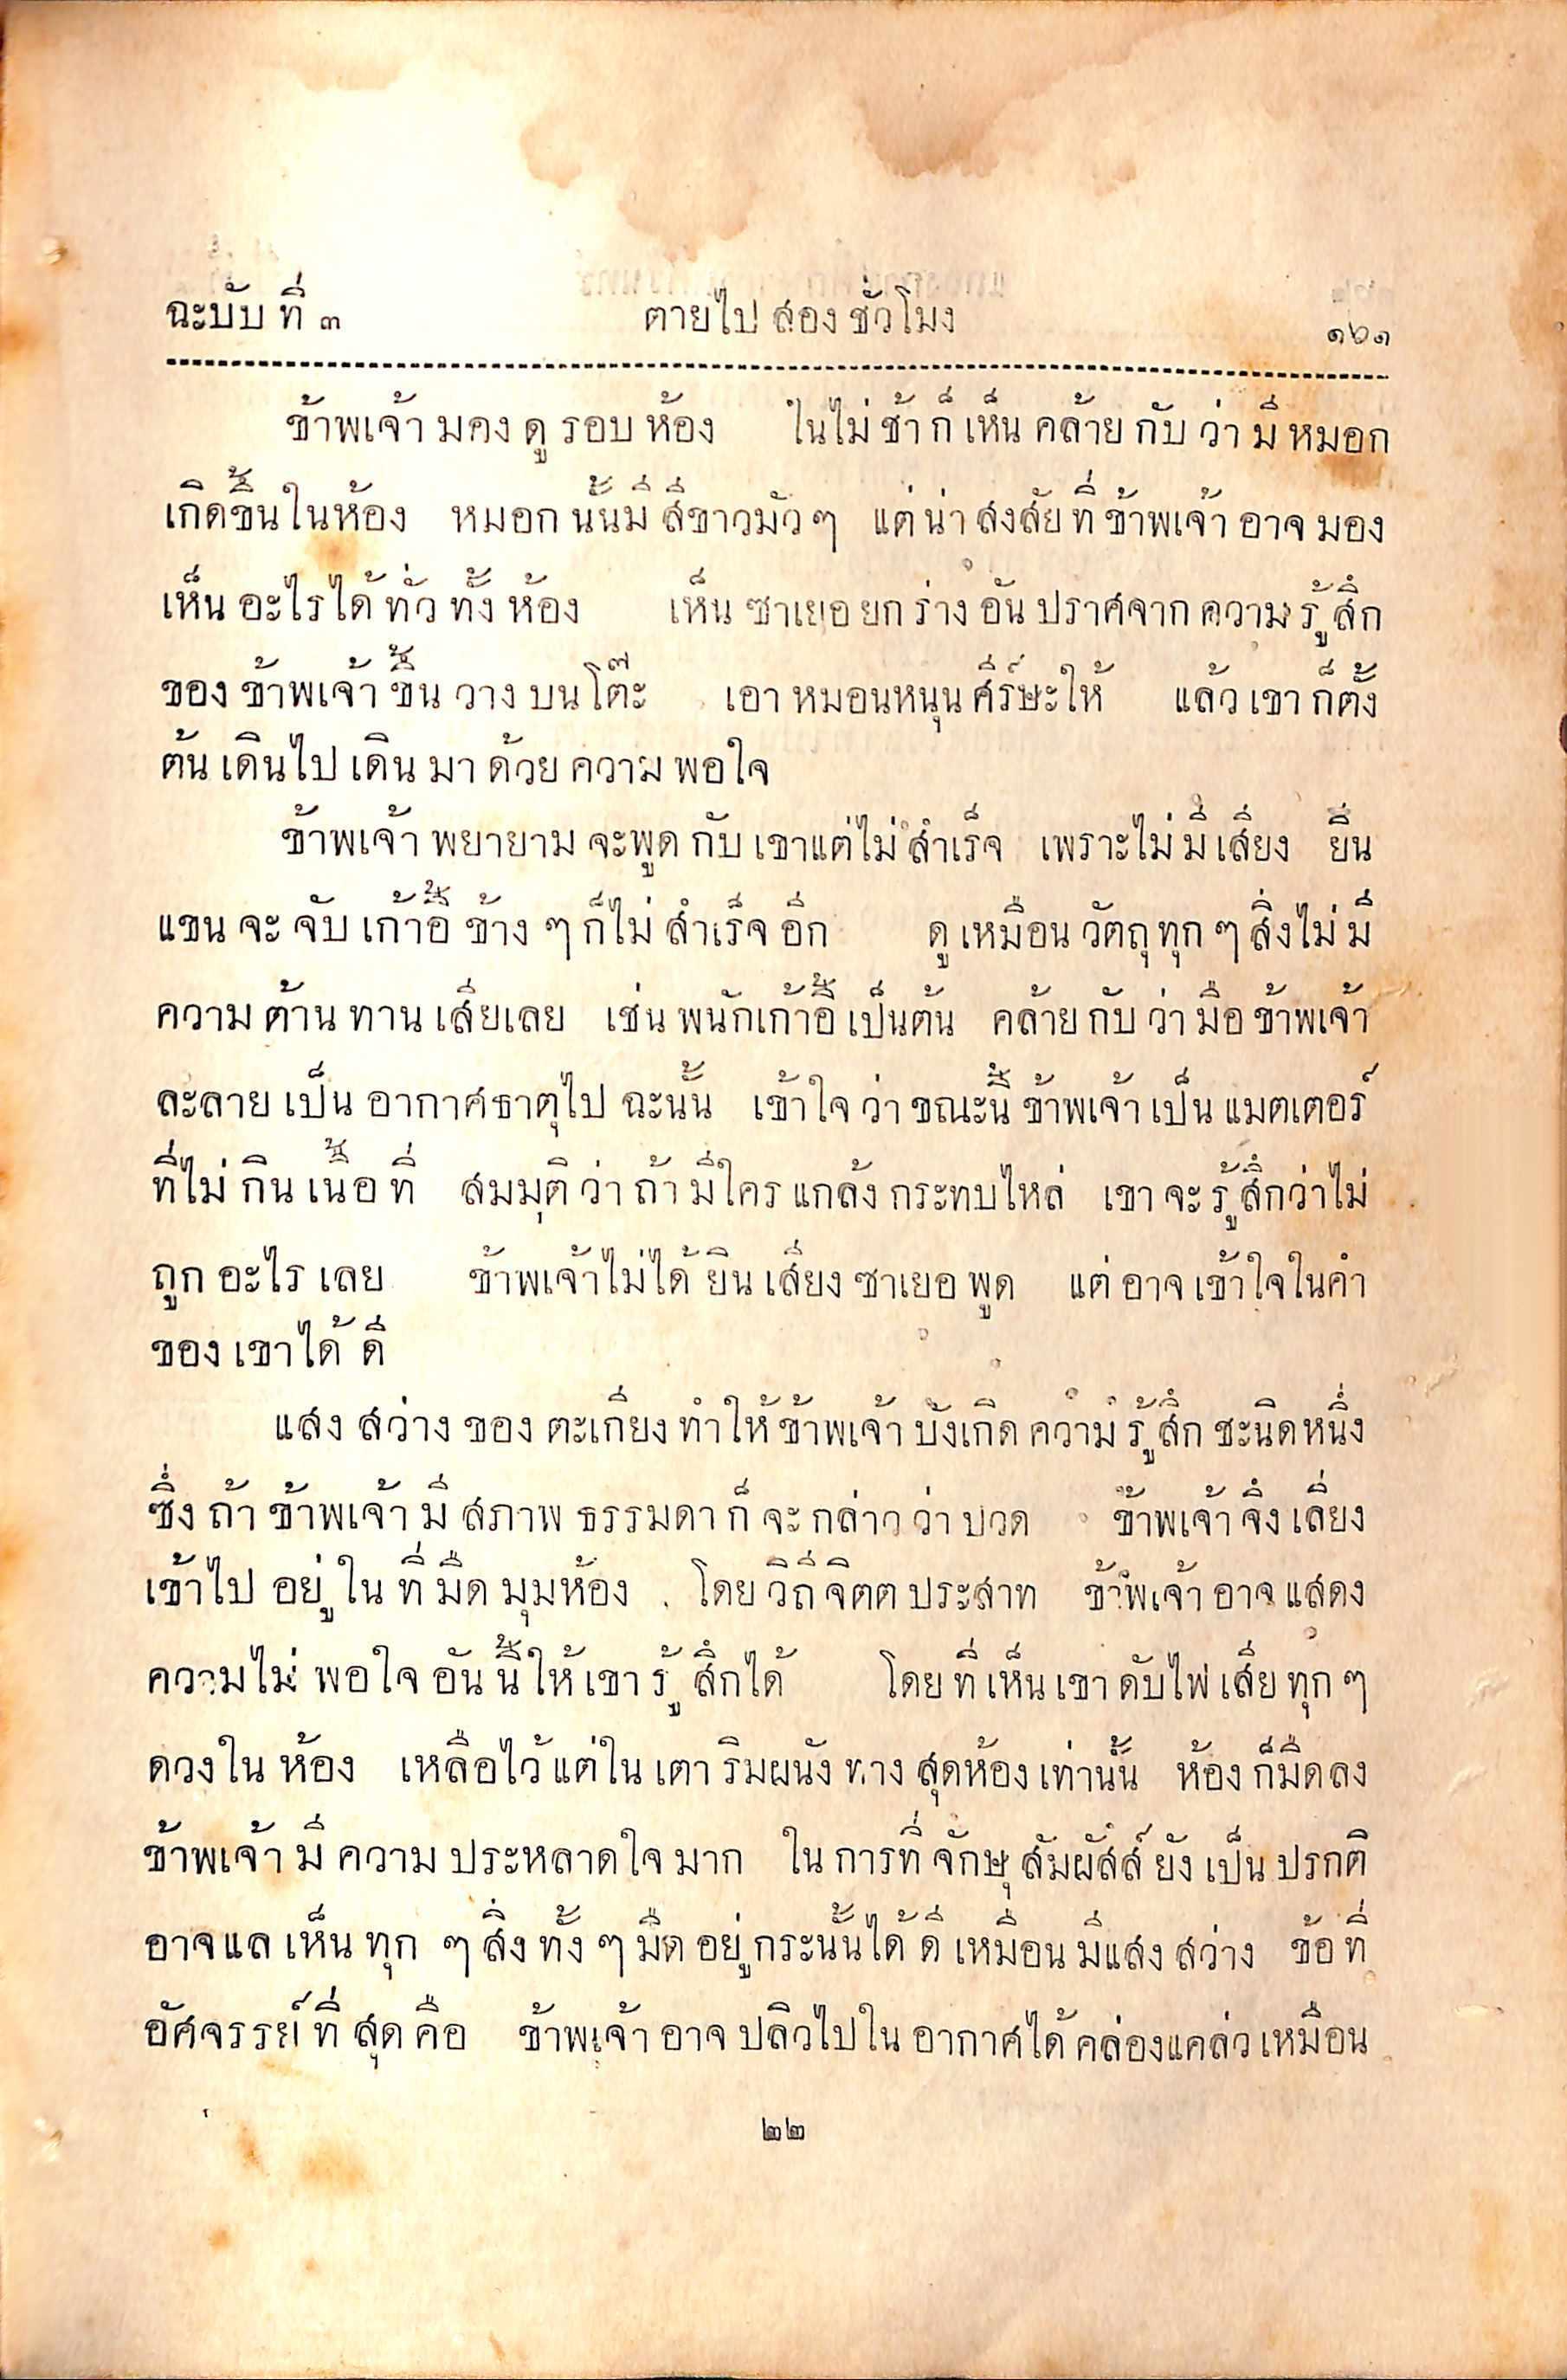 ฉะบับ ที่ ๓ ตายไป สอง ชั่วโมง ๑๖๑
ข้าพเจ้า มคง ดู รอบ ห้อง ในไม่ ช้า ก็ เห็น คล้าย กับ ว่า มี หมอก
เกิดขึ้น ในห้อง หมอก นั้นมี สีขาวมัว ๆ แต่ น่า สงสัย ที่ ข้าพเจ้า อาจ มอง
เห็น อะไรได้ ทั่ว ทั้ง ห้อง เห็น ซาเยอ ยก ร่าง อัน ปราศจาก ความ รู้สึก
ของ ข้าพเจ้า ขึ้น วาง บน โต๊ะ เอา หมอนหนุน ศีร์ษะให้ แล้ว เขา ก็ตั้ง
ต้น เดินไป เดิน มา ด้วย ความ พอใจ
ข้าพเจ้า พยายาม จะพูด กับ เขาแต่ไม่ สำเร็จ เพราะไม่ มี เสียง ยื่น
แขน จะ จับ เก้าอี้ ข้าง ๆ ก็ไม่ สำเร็จ อีก ดู เหมือน วัตถุ ทุก ๆ สิ่งไม่ มี
ความ ต้าน ทาน เสียเลย เช่น พนักเก้าอี้ เป็นต้น คล้าย กับ ว่า มือ ข้าพเจ้า
ละลาย เป็น อากาศธาตุไป ฉะนั้น เข้าใจ ว่า ขณะนี้ ข้าพเจ้า เป็น แมตเตอร์
ที่ไม่ กิน เนื้อ ที่ สมมุติ ว่า ถ้า มีใคร แกล้ง กระทบไหล่ เขา จะ รู้สึกว่าไม่
ถูก อะไร เลย ข้าพเจ้าไม่ได้ ยิน เสียง ซาเยอ พูด แต่ อาจ เข้าใจในคำ
ของ เขาได้ ดี
แสง สว่าง ของ ตะเกียง ทำให้ข้าพเจ้า บังเกิด ความ รู้สึก ชะนิดหนึ่ง
ซึ่ง ถ้า ข้าพเจ้า มี สภาพ ธรรมดา ก็ จะ กล่าว ว่า ปวด ข้าพเจ้า จึง เลี่ยง
เข้าไป อยู่ ใน ที่ มืด มุมห้อง โดย วิถี จิตต ประสาท ข้าพเจ้า อาจ แสดง
ความไม่ พอใจ อัน นี้ให้ เขา รู้ สึกได้ โดย ที่ เห็น เขา ดับไฟ เสีย ทุก ๆ
ดวงใน ห้อง เหลือไว้ แต่ใน เตา ริมผนัง ทาง สุดห้อง เท่านั้น ห้อง ก็มืดลง
ข้าพเจ้า มี ความ ประหลาดใจ มาก ใน การที่ จักษุ สัมผัสส์ ยัง เป็น ปรกติ
อาจแล เห็น ทุก ๆ สิ่ง ทั้ง ๆ มืด อยู่กระนั้นได้ ดี เหมือน มีแสง สว่าง ข้อ ที่
อัศจรรย์ ที่ สุด คือ ข้าพเจ้า อาจ ปลิวไปใน อากาศได้ คล่องแคล่ว เหมือน
๒๒